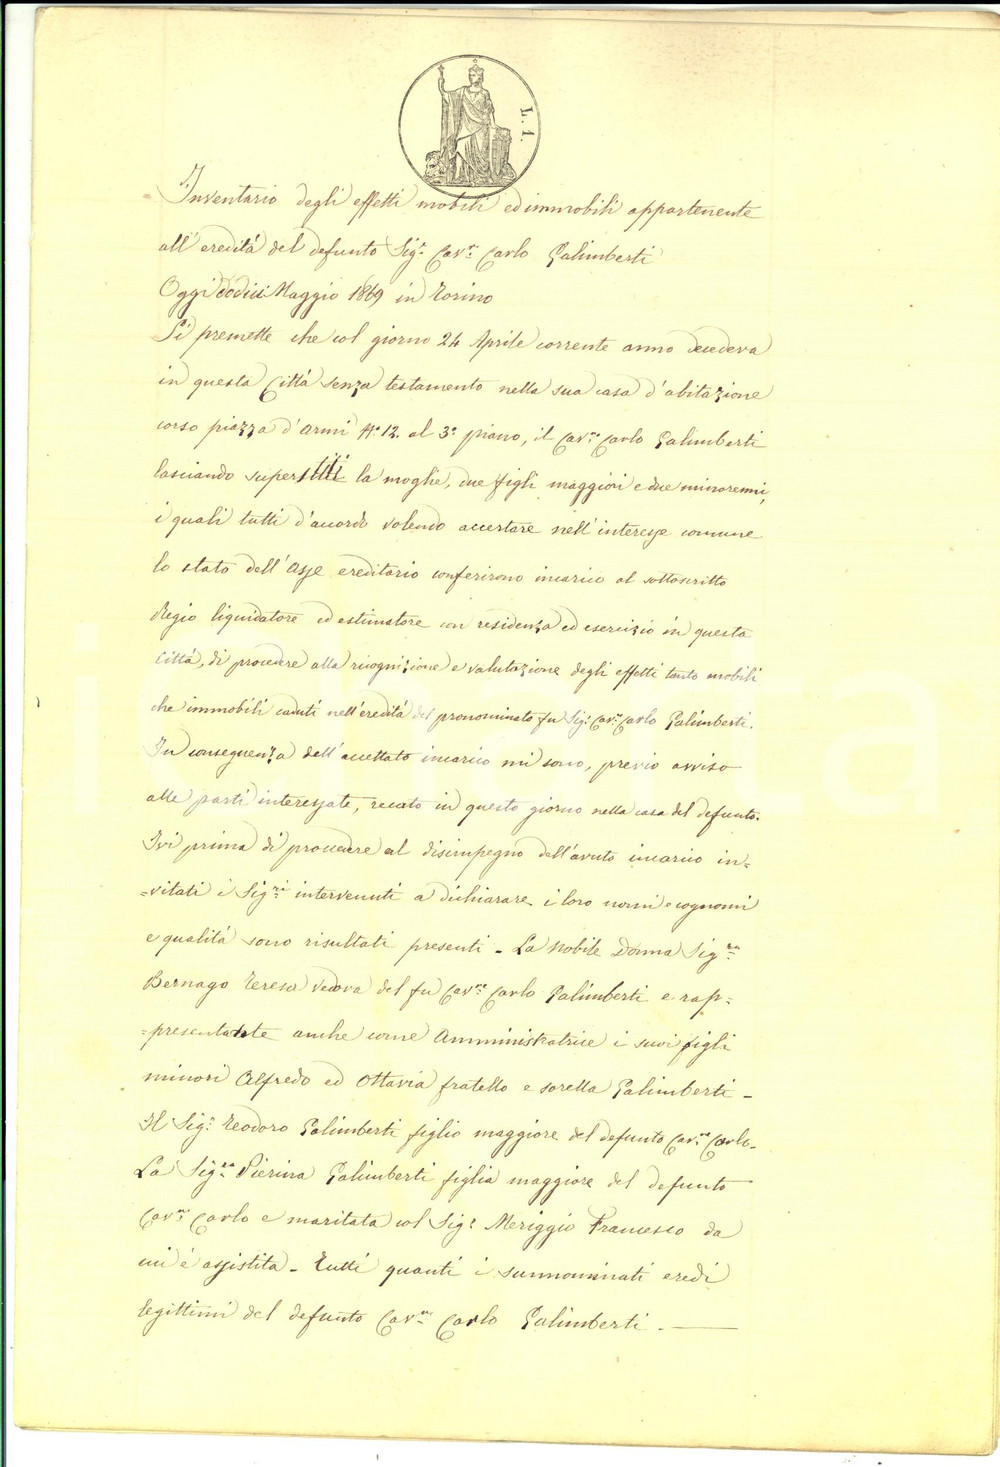 L. 1.
Inventario degli effetti mobili ed immobili appartenente
all'eredità del defunto Sigr. Cavre. Carlo Galimberti
Oggi dodici Maggio 1869 in Torino
Si premette che col giorno 24 Aprile corrente anno decedeva
in questa Città senza testamento nella sua casa d'abitazione
corso piazza d'armi No. 12. al 3o. piano, il Cavre. Carlo Galimberti
lasciando superstiti la moglie, due figli maggiori e due minorenni,
i quali tutti d'accordo volendo accertare nell'interesse comune
lo stato dell'Asse ereditario conferirono incarico al sottoscritto
Regio liquidatore ed estimatore con residenza ed esercizio in questa
Città, di procedere alla ricognizione e valutazione degli effetti tanto mobili
che immobili caduti nell'eredità del pronominato fu Sigr. Cavre. Carlo Galimberti.
In conseguenza dell'accettato incarico mi sono, previo avviso
alle parti interessate, recato in questo giorno nella casa del defunto.
Ivi prima di procedere al disimpegno dell'avuto incarico in=
=vitati i Sigri. intervenuti a dichiarare i loro nomi e cognomi
e qualità sono risultati presenti - La Nobile Donna Sigra.
Bernago Teresa vedova del fu Cavre. Carlo Galimberti e rap=
=presentante anche come Amministratrice i suoi figli
minori Alfredo ed Ottavia fratello e sorella Galimberti -
Il Sigr. Teodoro Galimberti figlio maggiore del defunto Cavre. Carlo -
La Sigra. Pierina Galimberti figlia maggiore del defunto
Cavre. Carlo e maritata col Sigr. Meriggio Francesco da
cui è assistita - Tutti quanti i sunnominati eredi
legittimi del defunto Cavre. Carlo Galimberti. -